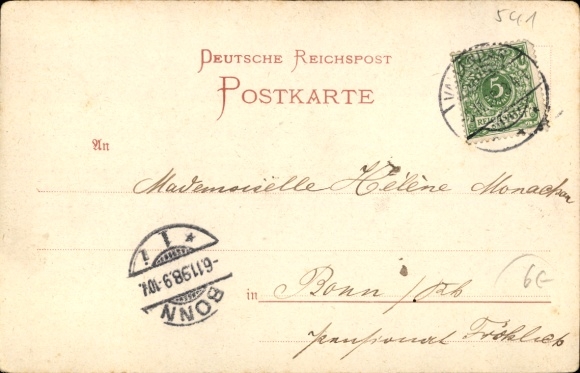 541
DEUTSCHE REICHSPOST
POSTKARTE
5
REICHSPOST
An
Mademoiselle Hélène Monachon
in Bonn / Rh
pensionat Fröhlich
6E
BONN
-6.11.98.9-10V.
* 1 i